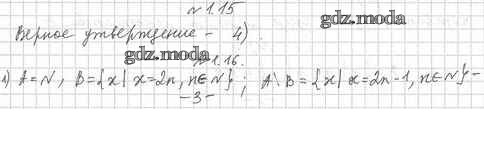 № 1.15
gdz.moda
Верное утверждение - 4).
gdz.moda
№ 1.16.
1) A = N, B = {x | x = 2n, n ∈ N}; A \ B = {x | x = 2n - 1, n ∈ N} -
- 3 -